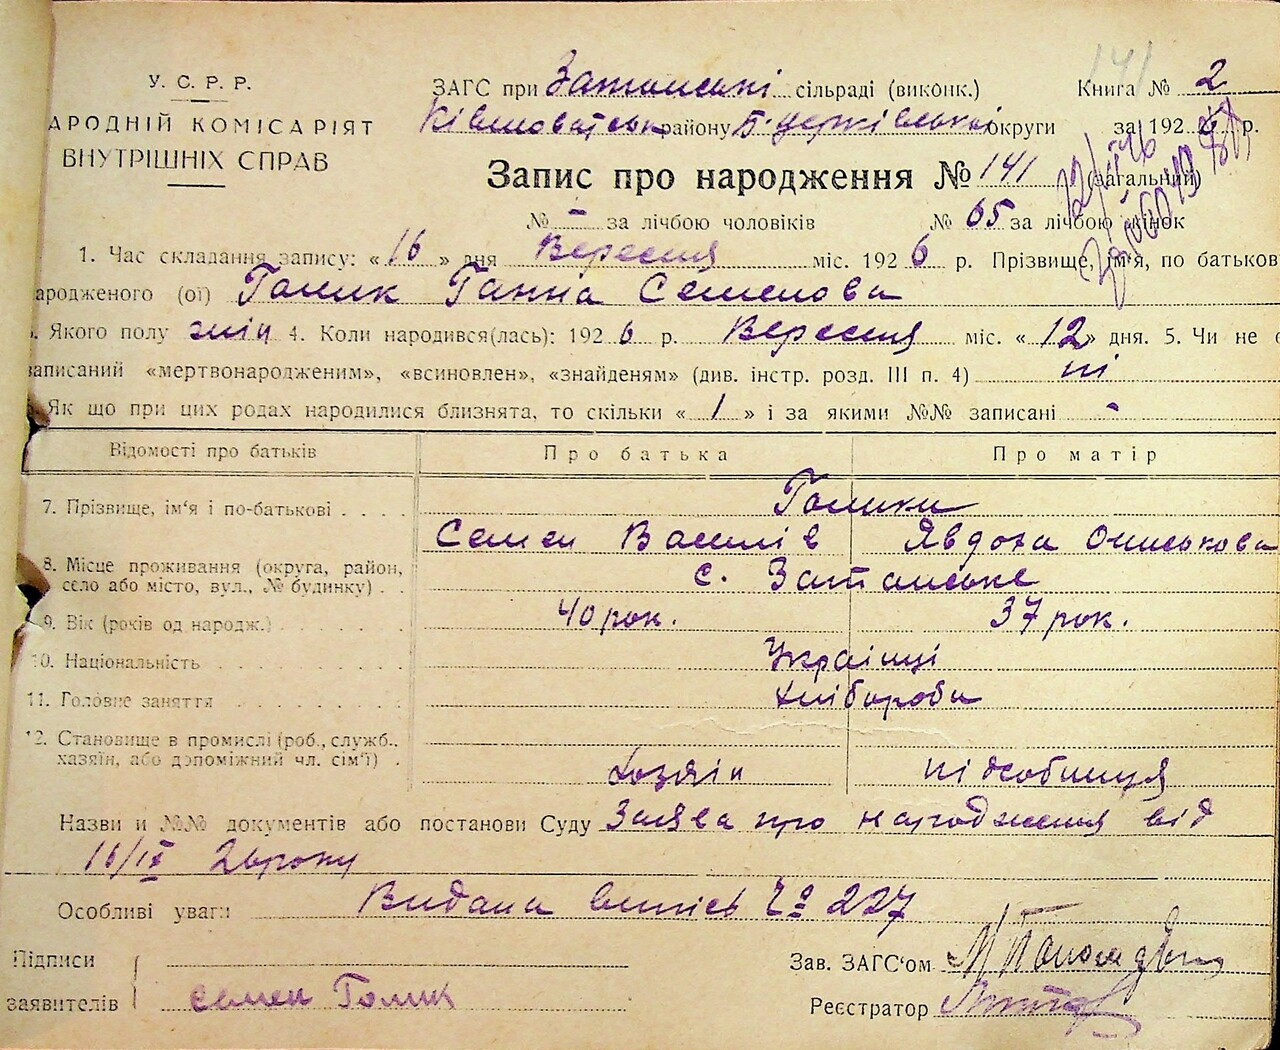 У. С. Р. Р.
АРОДНІЙ КОМІСАРІЯТ
ВНУТРІШНІХ СПРАВ
141
ЗАГС при Затонські сільраді (виконк.) Книга № 2
району Б-церківської округи за 1926 р.
Запис про народження № 141 (загальний)
№ - за лічбою чоловіків № 65 за лічбою жінок
1. Час складання запису: «16» дня Вересня міс. 1926 р. Прізвище, ім'я, по батьков
ародженого (ої) Голик Ганна Семенова
. Якого полу жін 4. Коли народився(лась): 1926 р. Вересня міс. «12» дня. 5. Чи не
записаний «мертвонародженим», «всиновлен», «знайденям» (див. інстр. розд. III п. 4) ні
Як що при цих родах народилися близнята, то скільки «1» і за якими №№ записані -
Відомості про батьків Про батька Про матір
7. Прізвище, ім'я і по-батькові . . . Голики
Семен Василів Явдоха Ониськова
8. Місце проживання (округа, район, село або місто, вул., № будинку) . . с. Затонське
9. Вік (років од народж.) 40 рок. 37 рок.
10. Національність . . . Українці
11. Головне заняття . . . Хлібороби
12. Становище в промислі (роб., служб., хазяїн, або допоміжний чл. сім'ї) . Хозяїн підсобниця
Назви и №№ документів або постанови Суду Заява про народження від
16/IX 26 року
Особливі уваги Видана випись № 227
Підписи заявителів Семен Голик
Зав. ЗАГС'ом
Реєстратор